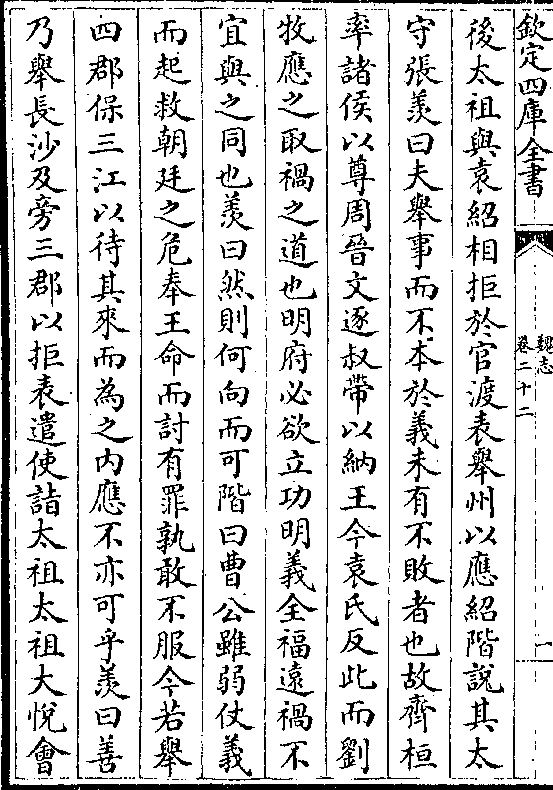 欽定四庫全書
魏志
卷二十二
一
後太祖與袁紹相拒於官渡表舉州以應紹階說其太
守張羨曰夫舉事而不本於義未有不敗者也故齊桓
率諸侯以尊周晉文逐叔帶以納王今袁氏反此而劉
牧應之取禍之道也明府必欲立功明義全福遠禍不
宜與之同也羨曰然則何向而可階曰曹公雖弱仗義
而起救朝廷之危奉王命而討有罪孰敢不服今若舉
四郡保三江以待其來而為之内應不亦可乎羨曰善
乃舉長沙及旁三郡以拒表遣使詣太祖太祖大悅會